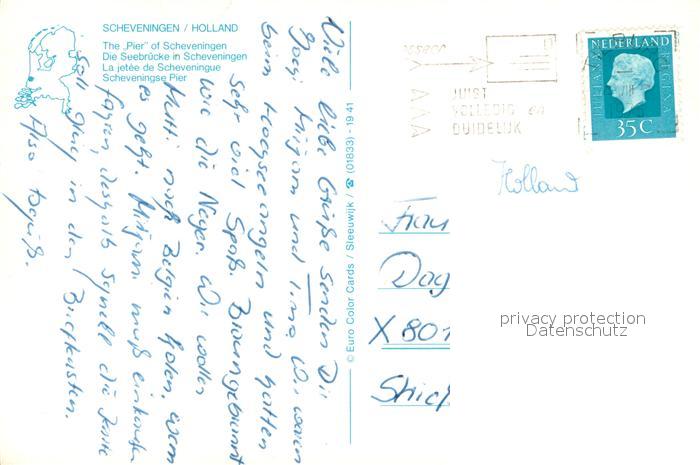 SCHEVENINGEN / HOLLAND
The „Pier" of Scheveningen
Die Seebrücke in Scheveningen
La jetée de Scheveningue
Scheveningse Pier
Viele liebe Grüße senden Dir
Mirjam und Timo. Wir waren
beim Hochseeangeln und hatten
sehr viel Spaß. Braungebrannt
wie die Neger. Wir wollen
Mutti noch Belgien holen, wenn
es geht. Mirjam muß einkaufen
fahren, deshalb schnell die Karte
in den Briefkasten.
Also
© Euro Color Cards / Sleeuwijk / ☎ (01833) - 19 41
JUIST
VOLLEDIG en
DUIDELIJK
NEDERLAND
JULIANA REGINA
35 C
Holland
Frau
Dag
X 801
privacy protection
Datenschutz